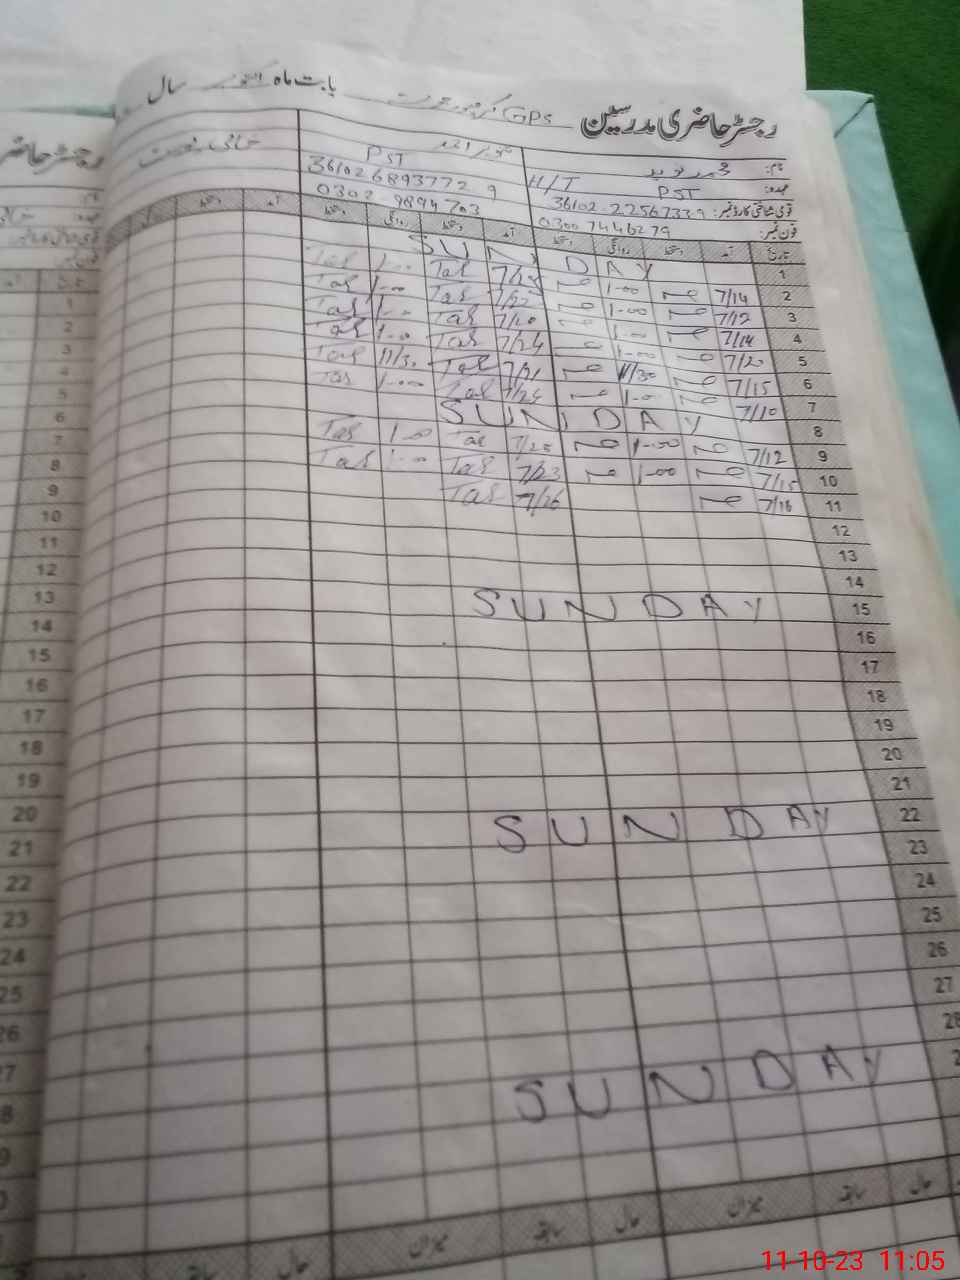 رجسٹر حاضری مدرسین GPS بابت ماہ اکتوبر سال
نام: محمد نوید
خالی پوسٹ
عہدہ: PST H/T
PST
قومی شناختی کارڈ نمبر: 36102-2256733 9
36102 6893772 9
فون نمبر: 0300 7446279
0302-9894703
تاریخ آمد دستخط روانگی دستخط آمد دستخط روانگی دستخط آمد دستخط
1 SUNDAY
2 7/14 1-00 Tas 1-00 Tas
3 7/12 1-00 7/22 Tas 1-00 Tas
4 7/14 1-00 7/20 Tas 1-0 Tas
5 7/20 1-00 7/24 Tas 1-00 Tas
6 7/15 11/30 7/21 Tas 11/30 Tas
7 7/10 1-00 7/24 Tas 1-00 Tas
8 SUNDAY
9 7/12 1-00 7/20 Tas 1-00 Tas
10 7/15 1-00 7/23 Tas 1-00 Tas
11 7/16 7/16 Tas
12
13
14
15 SUNDAY
16
17
18
19
20
21
22 SUNDAY
23
24
25
26
27
28
SUNDAY
حال سابقہ میزان حال سابقہ میزان حال سابقہ
رجسٹر حاضر
1
2
3
4
5
6
7
8
9
10
11
12
13
14
15
16
17
18
19
20
21
22
23
24
25
26
11-10-23 11:05